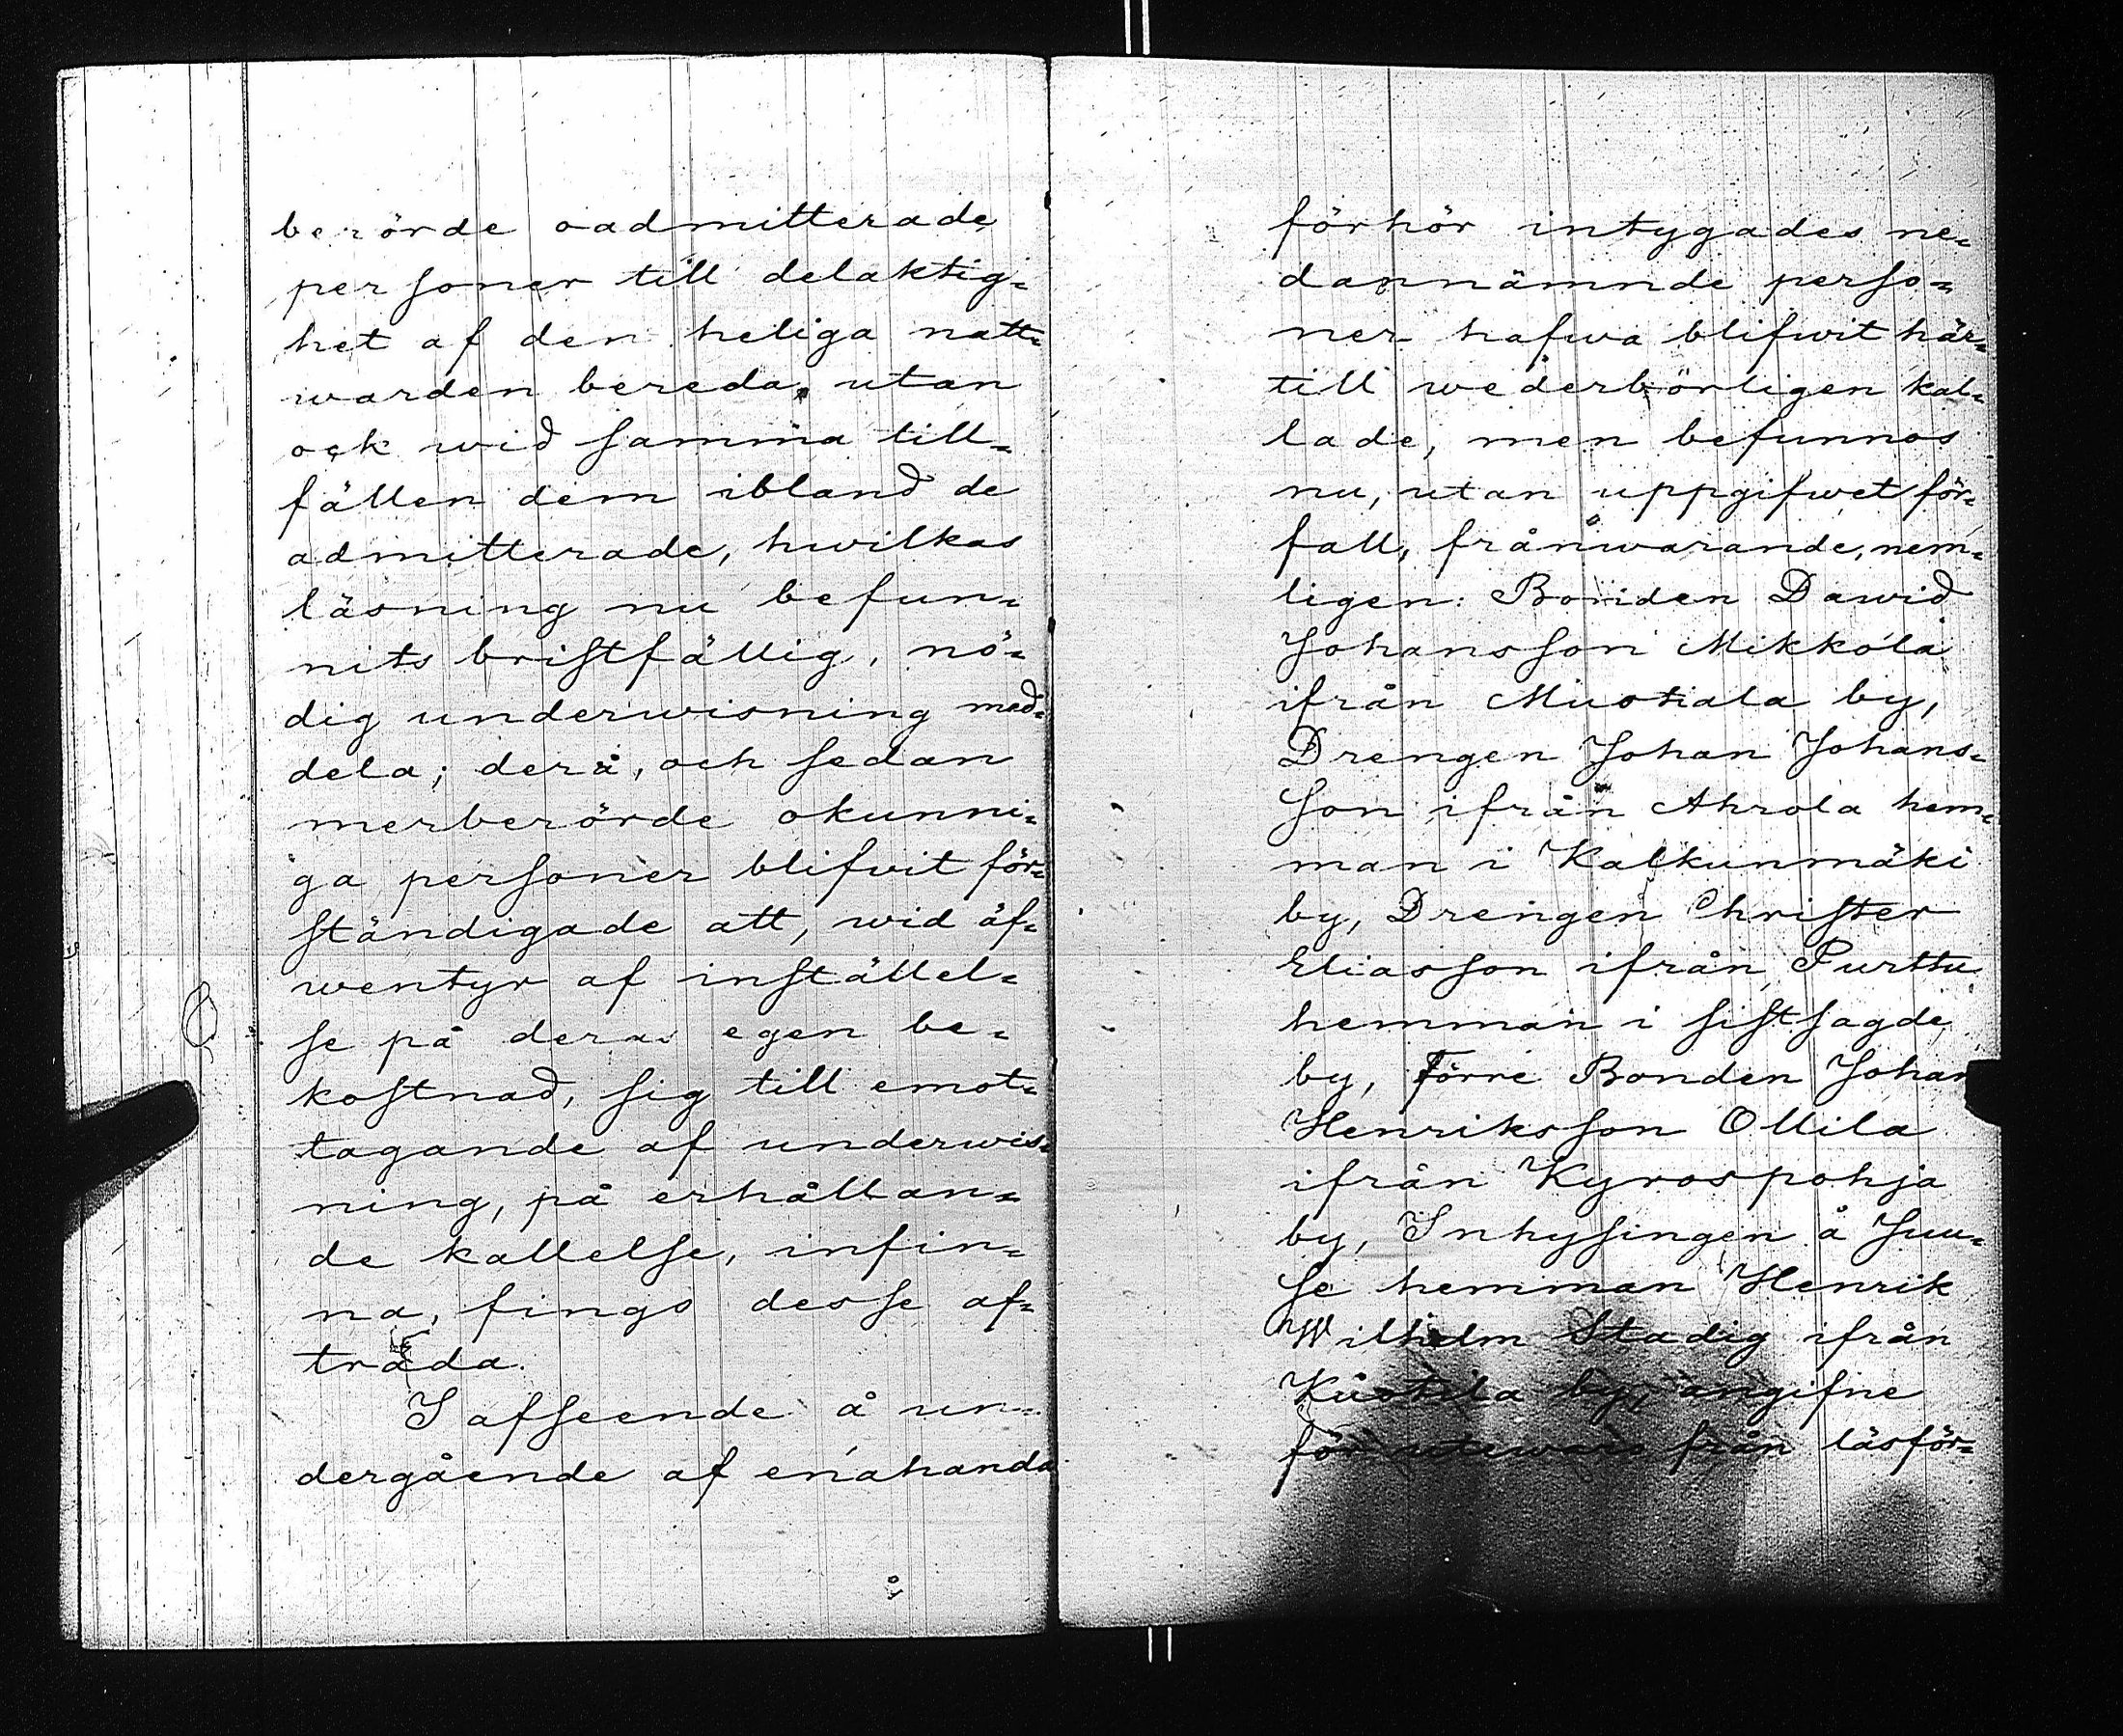 berörde oadmitterade
personer till delaktig=
het af den heliga natt=
warden bereda, utan
ock wid samma till=
fällen dem ibland de
admitterade, hwilkas
läsning nu befun=
nits bristfällig, nö=
dig underwisning med=
dela; derå, och sedan
merberörde okunni=
ga personer blifvit för=
ständigade att, wid äf=
wentyr af inställel=
se på deras egen be=
kostnad, sig till emot=
tagande af underwis=
ning, på erhållan=
de kallelse, infin=
na, fings desse af=
träda.
I afseende å un=
dergående af enahanda
förhör intygades ne=
dannämnde perso=
ner hafwa blifwit här=
till wederbörligen kal=
lade, men befunnos
nu, utan uppgifwet för=
fall, frånwarande, nem=
ligen: Bonden Dawid
Johansson Mikkola
ifrån Mustiala by,
Drengen Johan Johans=
son ifrån Ahrola hem=
man i Kalkunmäki
by, Drengen Christer
Eliasson ifrån Purttu
hemman i sistsagde
by, Förre Bonden Johan
Henriksson Ollila
ifrån Kyrospohja
by, Inhysingen å Juu=
se hemman Henrik
Wilhelm Stadig ifrån
Kuotila by, angifne
för utewaro från läsför=